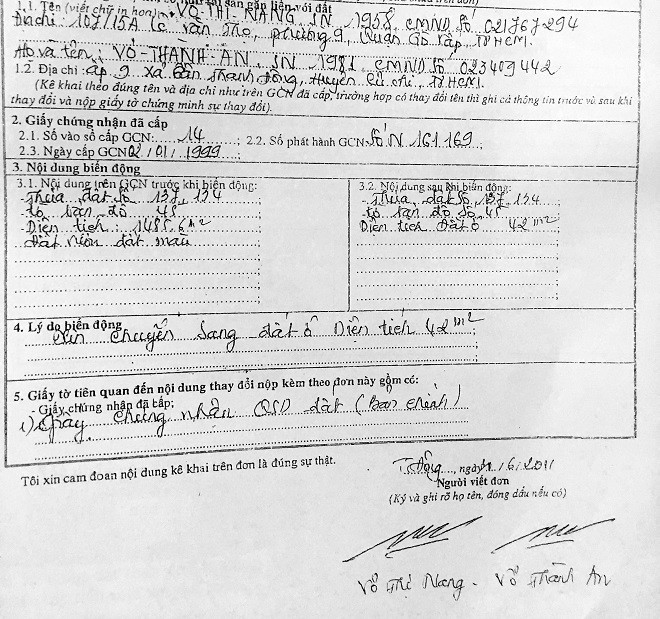 sản gắn liền với đất
1.1. Tên (viết chữ in hoa): VÕ THỊ NANG SN 1958, CMND Số 021767294
Địa chỉ: 107/15A Lê Văn Thọ, phường 9, Quận Gò Vấp, TPHCM.
Họ và tên: VÕ THÀNH ÂN, SN 1981 CMND Số 023409442
1.2. Địa chỉ: ấp 9 xã Tân Thạnh Đông, Huyện Củ chi, TPHCM.
(Kê khai theo đúng tên và địa chỉ như trên GCN đã cấp, trường hợp có thay đổi tên thì ghi cả thông tin trước và sau khi
thay đổi và nộp giấy tờ chứng minh sự thay đổi).
2. Giấy chứng nhận đã cấp
2.1. Số vào sổ cấp GCN: 14; 2.2. Số phát hành GCN: Số N 161169;
2.3. Ngày cấp GCN 02/01/1999;
3. Nội dung biến động
3.1. Nội dung trên GCN trước khi biến động:
- Thửa đất số 137, 134
- tờ bản đồ 45
- Diện tích: 1485,6 m2
Đất
3.2. Nội dung sau khi biến động:
- Thửa đất Số, 137, 134
- tờ bản đồ số 45
Diện tích Đất ở 42 m2
4. Lý do biến động
Xin chuyển Sang đất ở Diện tích 42 m2
5. Giấy tờ tiên quan đến nội dung thay đổi nộp kèm theo đơn này gồm có:
- Giấy chứng nhận đã cấp;
1) Giấy chứng nhận QSD đất (Bản chính)
Tôi xin cam đoan nội dung kê khai trên đơn là đúng sự thật.
T. Đông, ngày /6/2011
Người viết đơn
(Ký và ghi rõ họ tên, đóng dấu nếu có)
Võ Thị Nang - Võ Thành Ân